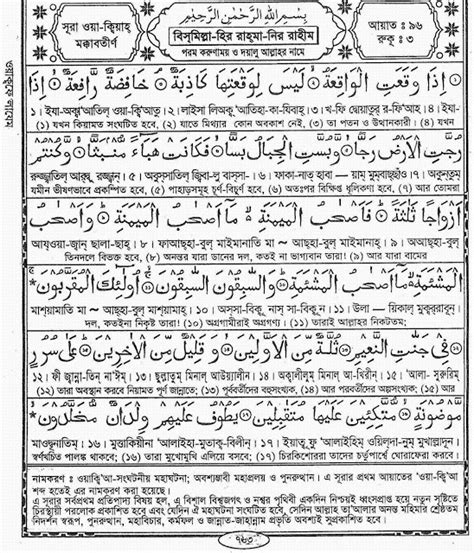 সূরা ওয়া-ক্বিয়াহ্
মক্কাবতীর্ণ
بِسْمِ اللهِ الرَّحْمٰنِ الرَّحِيْمِ
বিস্‌মিল্লা-হির রাহ্‌মা-নির রাহীম
পরম করুণাময় ও দয়ালু আল্লাহর নামে
আয়াত : ৯৬
রুকূ : ৩
اِذَا وَقَعَتِ الْوَاقِعَةُ ۙ لَيْسَ لِوَقْعَتِهَا كَاذِبَةٌ ۘ خَافِضَةٌ رَّافِعَةٌ ۙ اِذَا
১। ইযা-অক্ব‘আতিল্ ওয়া-ক্বি‘আতু। ২। লাইসা লিওক্ব্‘আতিহা-কা-যিবাহ্। ৩। খ-ফি দ্বোয়াতুর্ র-ফি‘আহ্। ৪। ইযা-
(১) যখন কিয়ামত সংঘটিত হবে, (২) যাতে মিথ্যার কোন অবকাশ নেই, (৩) তা পতন ও উত্থানকারী। (৪) যখন
رُجَّتِ الْاَرْضُ رَجًّا ۙ وَّبُسَّتِ الْجِبَالُ بَسًّا ۙ فَكَانَتْ هَبَآءً مُّنْۢبَثًّا ۙ وَّكُنْتُمْ
রুজ্জ্বাতিল্ আরদ্বু রজ্জ্বান্। ৫। অবুস্‌সাতিল্ জ্বিবা-লু বাস্‌সা-। ৬। ফাকা-নাত্ হাবা — য়াম্ মুম্‌বাছ্‌ছাঁও। ৭। অকুন্‌তুম্
যমীন ভীষণভাবে প্রকম্পিত হবে, (৫) পাহাড়সমূহ চূর্ণ-বিচূর্ণ হবে, (৬) অতঃপর বিক্ষিপ্ত ধূলিকণা হবে, (৭) আর তোমরা
اَزْوَاجًا ثَلٰثَةً ۙ فَاَصْحٰبُ الْمَيْمَنَةِ ۙ مَاۤ اَصْحٰبُ الْمَيْمَنَةِ ۙ وَاَصْحٰبُ
আয্‌ওয়া-জ্বান্ ছালা-ছাহ্। ৮। ফাআছ্‌হা-বুল্ মাইমানাতি মা ~ আছ্‌হা-বুল্ মাইমানাহ্। ৯। অআছ্‌হা-বুল্
তিনদলে বিভক্ত হবে, (৮) অনন্তর যারা ডানের দল, কতই না ভাগ্যবান তারা! (৯) আর যারা বামের
الْمَشْـَٔمَةِ ۙ مَاۤ اَصْحٰبُ الْمَشْـَٔمَةِ ۙ وَالسّٰبِقُوْنَ السّٰبِقُوْنَ ۙ اُولٰٓئِكَ الْمُقَرَّبُوْنَ ۚ
মাশ্‌য়ামাতি মা ~ আছ্‌হা-বুল্ মাশ্‌য়ামাহ্। ১০। অস্‌সা-বিকূ্নাস্ সা-বিকূ্ন। ১১। উলা — য়িকাল্ মুক্বর্‌রাবূন্।
দল, কতইনা নিকৃষ্ট তারা! (১০) অগ্রগামীরাই অগ্রগণ্য। (১১) তারাই আল্লাহর নিকটতম;
فِيْ جَنّٰتِ النَّعِيْمِ ثُلَّةٌ مِّنَ الْاَوَّلِيْنَ ۙ وَقَلِيْلٌ مِّنَ الْاٰخِرِيْنَ ۙ عَلٰى سُرُرٍ
১২। ফী জ্বান্না-তিন্ না‘ঈম্। ১৩। ছুল্লাতুম্ মিনাল্ আউয়ালীন। ১৪। অক্বালীলুম্ মিনাল্ আ-খিরীন্। ১৫। ‘আলা- সুরুরিম্
(১২) তারা অবস্থান করবে নিয়ামত পূর্ণ জান্নাতে; (১৩) পূর্ববর্তীদের বহুসংখ্যক, (১৪) আর পরবর্তীদের অল্পসংখ্যক; (১৫) আর
مَّوْضُوْنَةٍ ۙ مُّتَّكِـِٕيْنَ عَلَيْهَا مُتَقٰبِلِيْنَ يَطُوْفُ عَلَيْهِمْ وِلْدَانٌ مُّخَلَّدُوْنَ ۙ
মাওদ্বূনাতিম্। ১৬। মুত্তাকিয়ীনা ‘আলাইহা-মুতাক্ব-বিলীন্। ১৭। ইয়াতূ্ফু ‘আলাইহিম্ ওয়িল্‌দা-নুম্ মুখাল্লাদূন্।
স্বর্ণখচিত পালঙ্ক থাকবে; (১৬) তারা মুখোমুখি হেলিয়ে বসবে; (১৭) চিরকিশোররা তাদের চতুর্পার্শ্বে ঘোরাফেরা করবে।
নামকরণ : ওয়াক্বি‘আ-সংঘটনীয় মহাঘটনা; অবশ্যম্ভাবী মহাপ্রলয় ও পুনরুত্থান। এ সূরার প্রথম আয়াতের ‘ওয়া-ক্বি‘আ’
শব্দ হতেই এর নামকরণ করা হয়েছে।
এ সূরার সর্বপ্রথম প্রতিপাদ্য বিষয় হল, এ বিশাল বিশ্বজগৎ ও নশ্বর পৃথিবী একদিন নিশ্চয়ই ধ্বংসপ্রাপ্ত হয়ে নতুন সৃষ্টিতে
চিরস্থায়ীরূপে প্রকাশিত হবে এবং যেদিন ঐ মহাঘটনা সংঘটিত হবে, সে দিনই আল্লাহ তা‘আলার অনন্ত মহিমার শ্রেষ্ঠতম
নিদর্শন স্বরূপ, পুনরুত্থান, মহাবিচার, কর্মফল ও জান্নাত-জাহান্নাম প্রভৃতি অবশ্যই সুপ্রকাশিত হবে।
৭৬৩